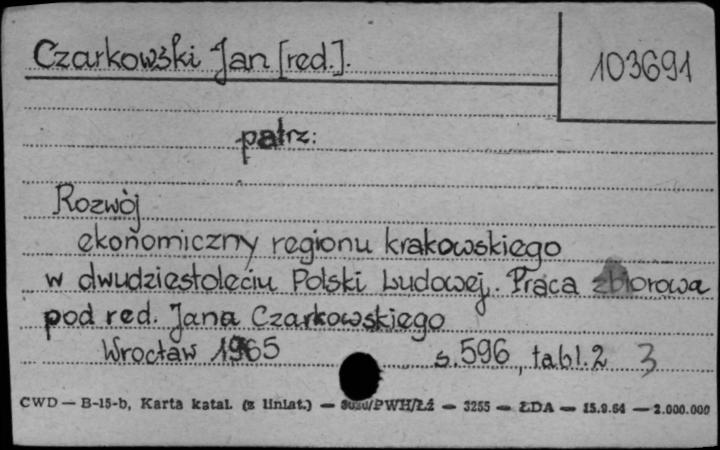 Czarkowski Jan [red.].
103691
patrz:
Rozwój
ekonomiczny regionu krakowskiego
w dwudziestoleciu Polski Ludowej. Praca zbiorowa
pod red. Jana Czarkowskiego
Wrocław 1965 s. 596, tabl. 2 3
CWD — B-15-b, Karta katal. (z liniat.) — /PWH/Łź — 3255 — ŁDA — 15.9.64 — 2.000.000